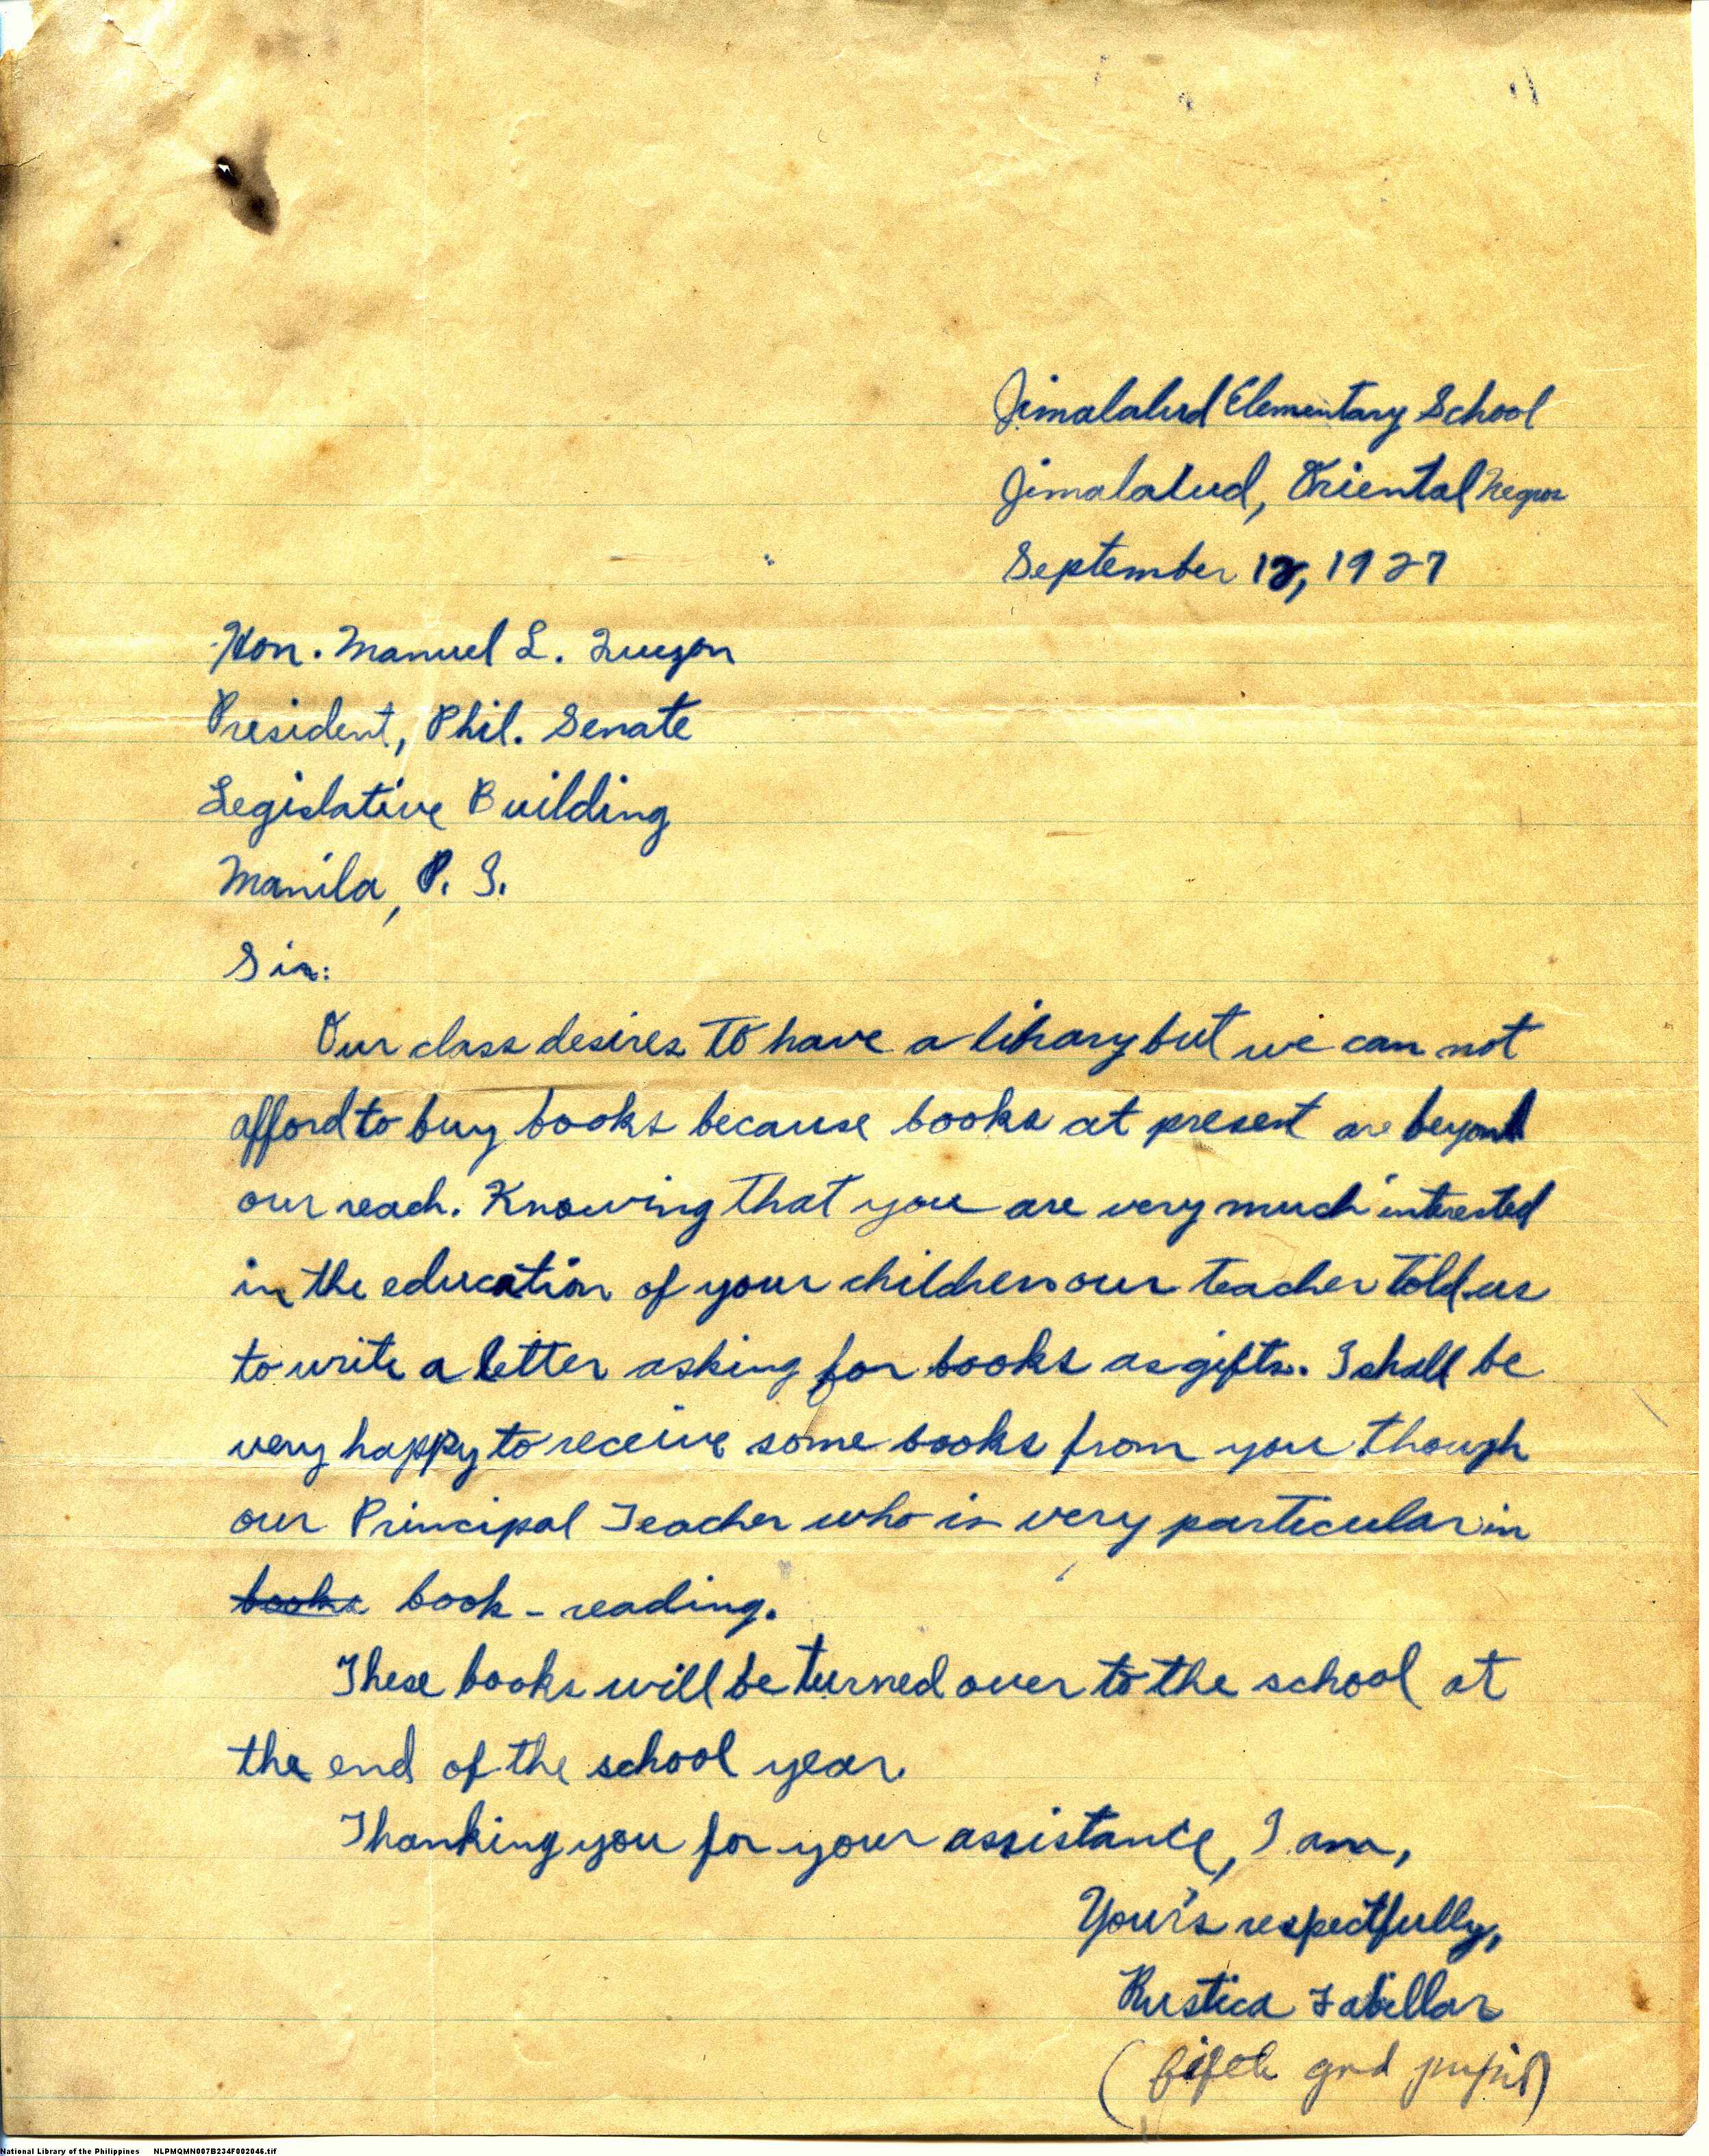 Jimalalud Elementary School
Jimalalud, Oriental Negros
September 12, 1927
Hon. Manuel L. Quezon
President, Phil. Senate
Legislative Building
Manila, P. I.
Sir:
Our class desires to have a library but we can not
afford to buy books because books at present are beyond
our reach. Knowing that you are very much interested
in the education of your children our teacher told us
to write a letter asking for books as gifts. I shall be
very happy to receive some books from you though
our Principal Teacher who is very particular in
books book-reading.
These books will be turned over to the school at
the end of the school year.
Thanking you for your assistance, I am,
Your's respectfully,
Rustica Fabillar
(fifth grd pupil)
National Library of the Philippines NLPMQMN007B234F002046.tif